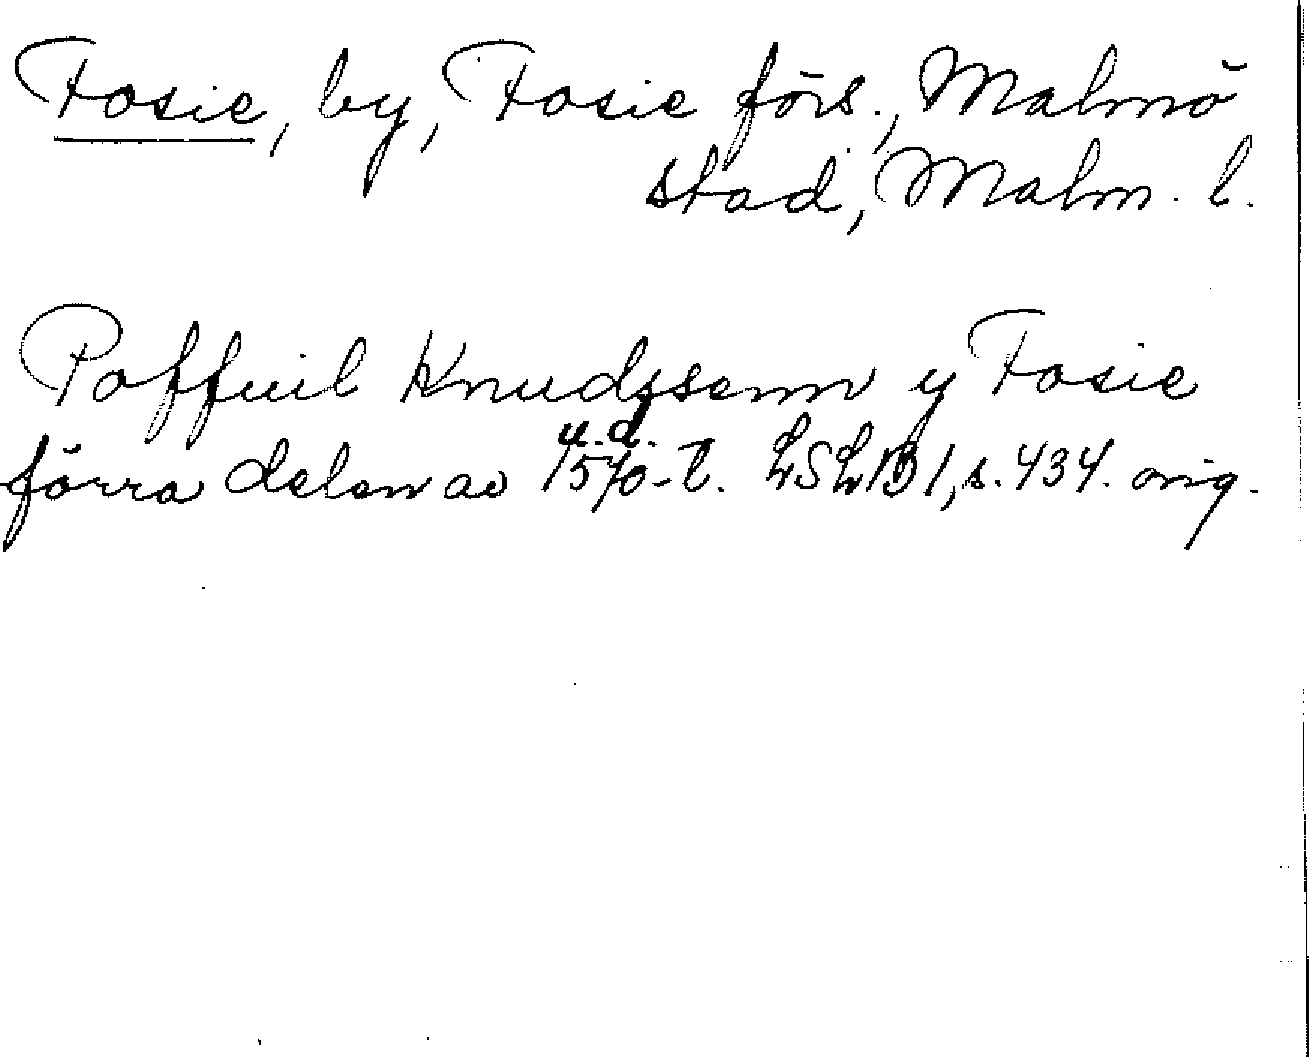 Fosie, by, Fosie förs., Malmö
stad, Malm. l.
Poffuil Knudssenn y Fosie
u.d.
förra delen av 1570-t. LSLB 1, s. 434. orig.